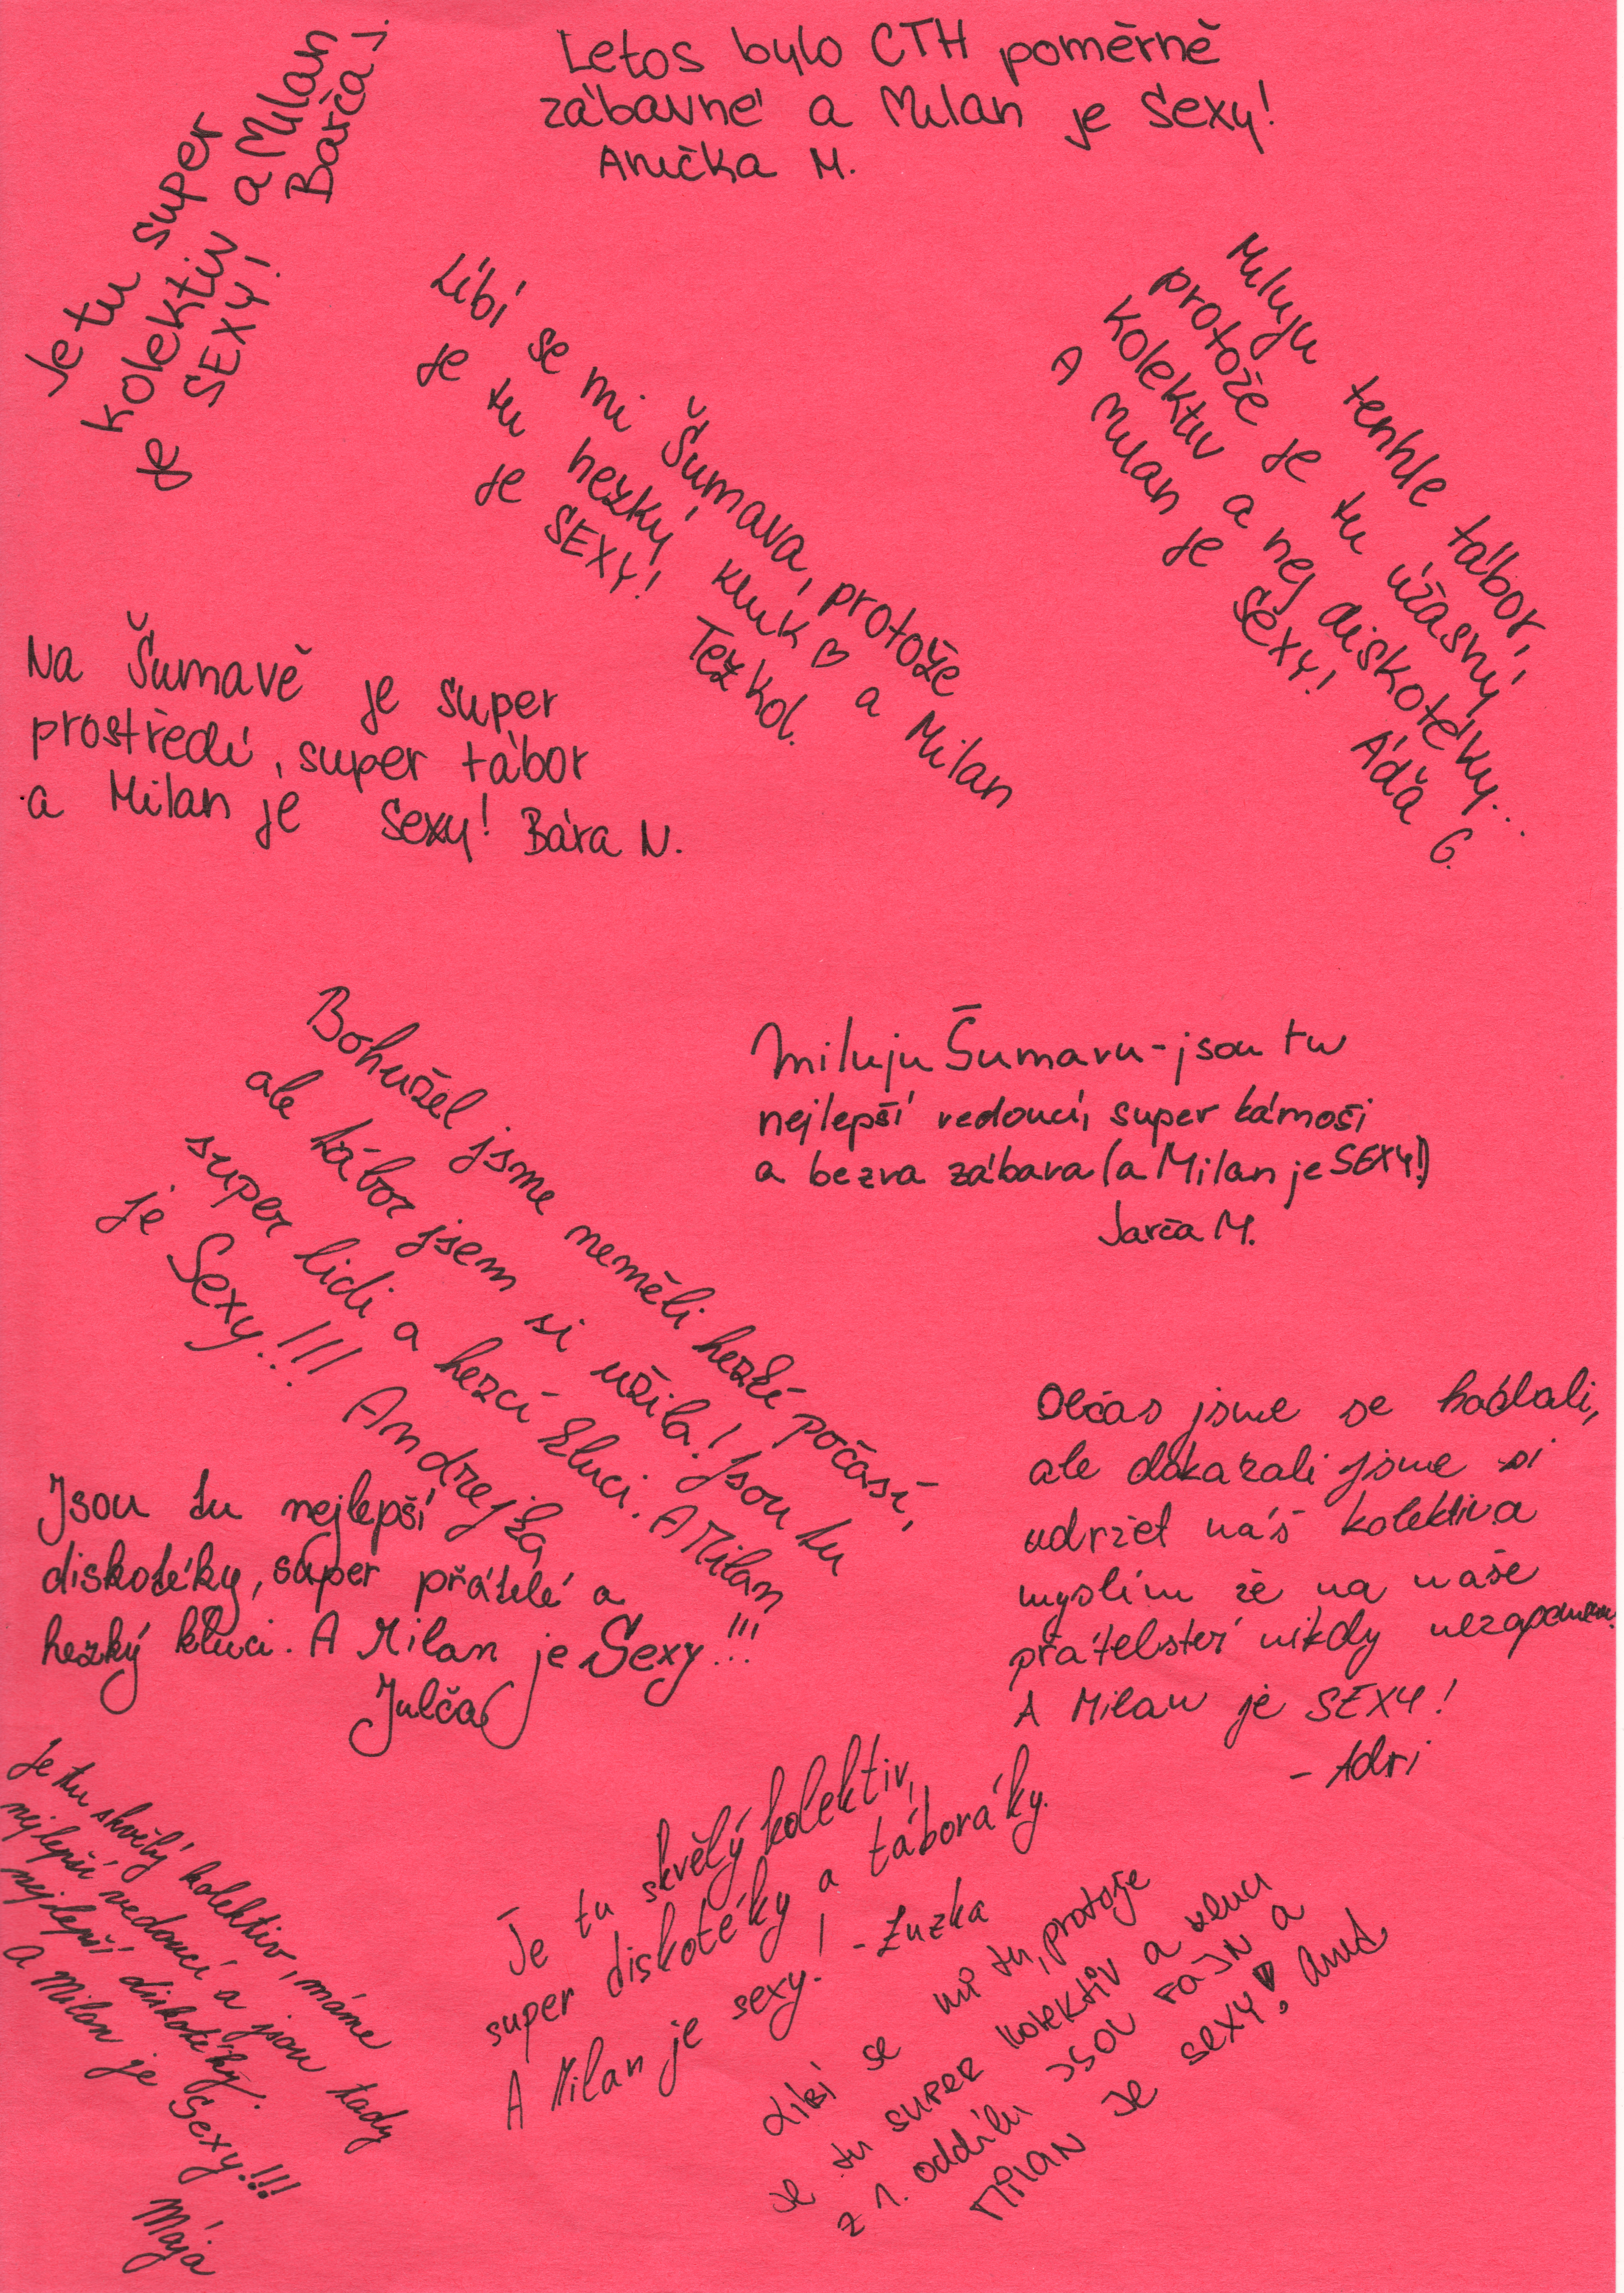 Letos bylo CTH poměrně
zábavné a Milan je sexy!
Anička M.
Je tu super
kolektiv a Milan
je SEXY! Barča J.
Líbí se mi Šumava, protože
je tu hezký kluk ♡ a Milan
je SEXY! Tež kol.
Miluju tenhle tábor,
protože je tu úžasný
kolektiv a nej diskotéky...
A Milan je sexy! Áďa G.
Na Šumavě je super
prostředí, super tábor
a Milan je sexy! Bára N.
Bohužel jsme neměli hezké počasí,
ale tábor jsem si užila! Jsou tu
super lidi a hezcí kluci. A Milan
je Sexy!!! Andrejka
Miluju Šumavu - jsou tu
nejlepší vedoucí, super kámoši
a bezva zábava (a Milan je SEXY!)
Jarča M.
Občas jsme se hádali,
ale dokázali jsme si
udržet náš kolektiv a
myslím že na naše
přátelství nikdy nezapomenu.
A Milan je SEXY!
- Adri
Jsou tu nejlepší
diskotéky, super přátelé a
hezký kluci. A Milan je Sexy!!!
Julča
Je tu skvělý kolektiv, máme
nejlepší vedoucí a jsou tady
nejlepší diskotéky.
A Milan je Sexy!!!
Mája
Je tu skvělý kolektiv,
super diskotéky a táboráky.
A Milan je sexy! - Zuzka
Líbí se mi tu, protože
je tu super kolektiv a kluci
z 1. oddílu jsou FAJN a
Milan je sexy!